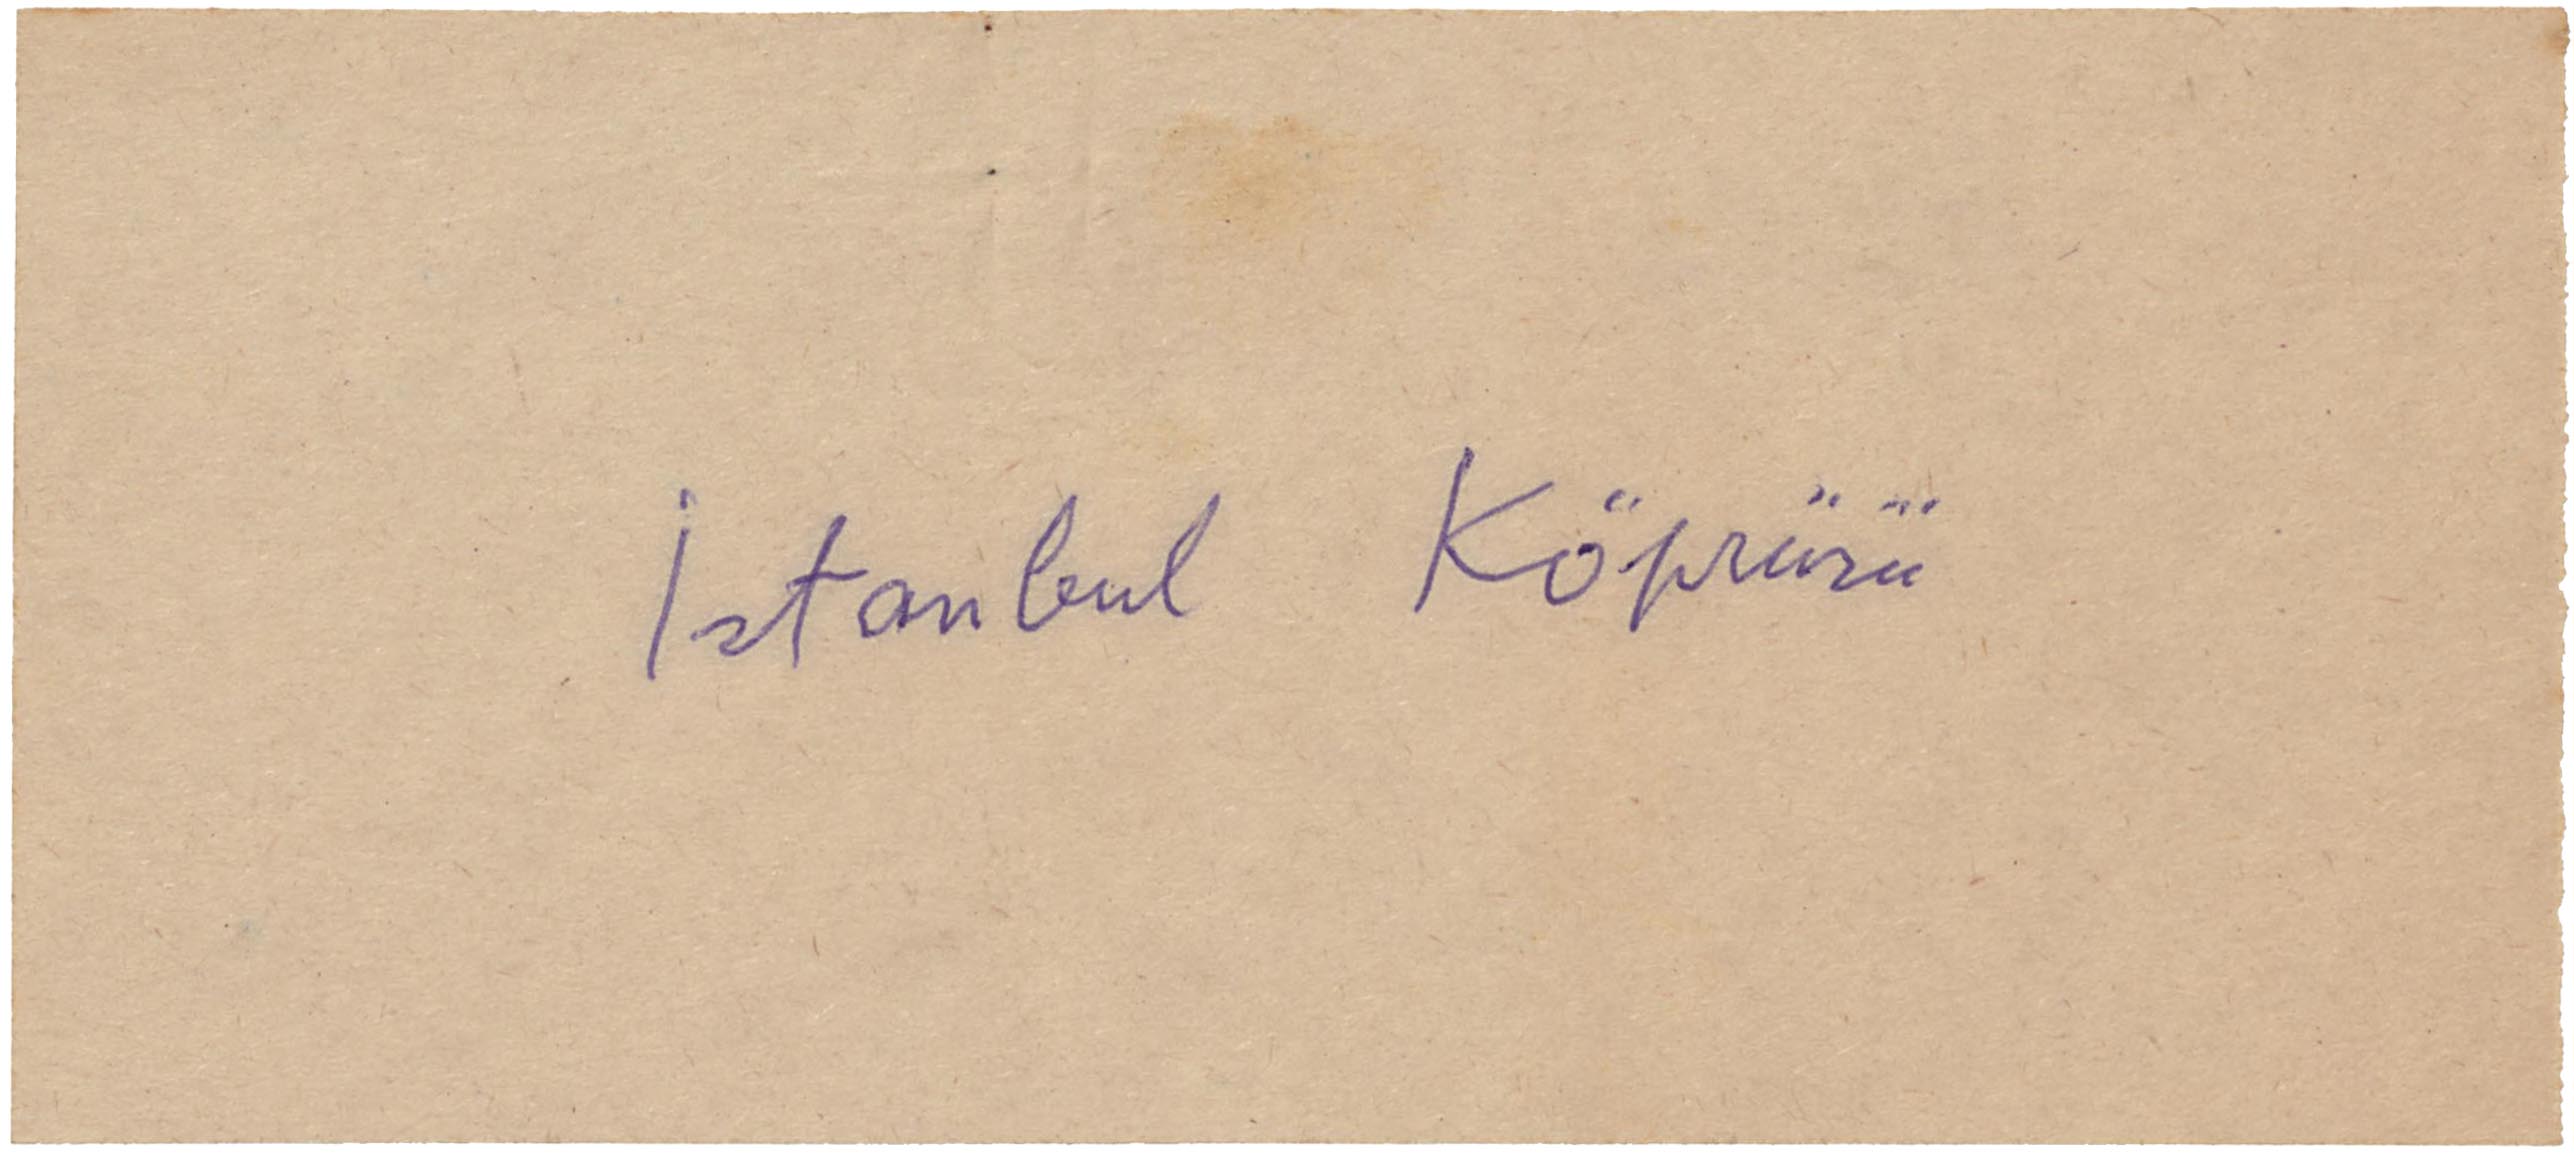 İstanbul Köprüsü